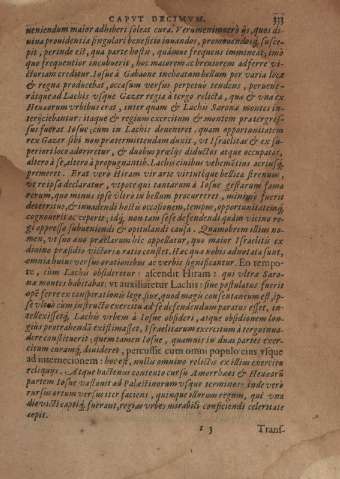 CAPVT DECIMVM. 333
ueniendum maior adhiberi soleat cura. Verumenimuero ijs, quos di
uina prouidentia singulari beneficio iuuandos, promouendosq́; susce-
pit, perinde est, qua parte hostis, quámue frequens immineat; imò
quo frequentior incubuerit, hoc maiorem ac breuiorem adferre vi-
ctoriam creditur. Iosue à Gabaone inchoatum bellum per varia loca
& regna producebat, occasum versus perpetuo tendens, peruene-
rátque ad Lachis vsque Gazer regia à tergo relicta, quæ & vna ex
Heuæorum vrbibus erat, inter quam & Lachis Sarona montes in-
terijciebantur: itaque & regium exercitum & montem prætergres-
sus fuerat Iosue; cùm in Lachis deueneret. quam opportunitatem
rex Gazer sibi non prætermittendam duxit, vt Israëlitas & ex su-
periori loco adoriretur, & duobus prælijs diductos atque occupatos,
altero à se, altero à propugnantib. Lachis ciuibus vehemẽtius acriusq́;
premeret. Erat verò Hiram vir arte virtutíque bellica strenuus,
vt re ipsa declaratur, vtpote qui tantarum à Iosue gestarum fama
rerum, quo minus ipse vltro in bellum procurreret, minimè fuerit
deterritus, & inuadendi hostis occasionem, tempus, opportunitatemq́;
cognouerit ac ceperit; idq́; non tam sese defendendi quàm vicino re-
gi oppresso subueniendi & opitulandi causa. Quamobrem illius no-
men, vt suo æuo præclarum hic appellatur, quo maior Israëlitis ex
diuino præsidio victoriæ ratio conster. Hæc qua nobis adnotata sunt,
omnia huius versus orationibus ac verbis significantur. En tempo-
re, cùm Lachis obsideretur: ascendit Hiram: qui vltra Saro-
næ montes habitabat: vt auxiliaretur Lachis: siue postulatus fuerit
opẽ ferre ex conspirationis lege siue, quod magis consentaneum est, ip-
se vltro cùm instructo exercitu ad se defendendum paratus esset, in-
tellexissetq́; Lachis vrbem à Iosue obsideri, atque obsidionem lon-
gius protrahendã existimasset, Israëlitarum exercitum à tergo inua-
dere constituerit; quem tamen Iosue, quamuis in duas partes exer-
citum cùm q́; diuideret, percussit cum omni populo eius vsque
ad internecionem: hoc est, nullo omnino relicto ex illius exercitu
reliquijs. Atque hactenus contento cursu Amorrhæos & Heuæorũ
partem Iosue vastauit ad Palæstinorum vsque terminos: inde verò
rursus ortum versus iter faciens, quinque aliorum regum, qui vna
die victi captiq́; fuerant, regias vrbes mirabili conficiendi celeritate
cepit.
t 3 Trans-